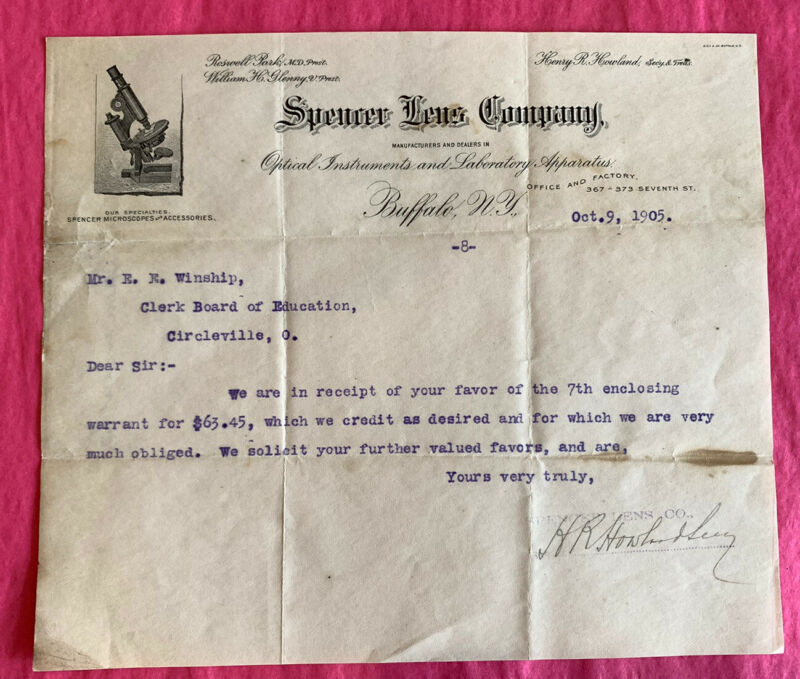 Roswell Park, M.D. Prest.
William H. Glenny, V. Prest.
Henry R. Howland, Secy. & Treas.
Spencer Lens Company,
MANUFACTURERS AND DEALERS IN
Optical Instruments and Laboratory Apparatus.
OFFICE AND FACTORY,
367 - 373 SEVENTH ST.
OUR SPECIALTIES.
SPENCER MICROSCOPES AND ACCESSORIES.
Buffalo, N.Y.,
Oct.9, 1905.
-8-
Mr. E. E. Winship,
Clerk Board of Education,
Circleville, O.
Dear Sir:-
We are in receipt of your favor of the 7th enclosing
warrant for $63.45, which we credit as desired and for which we are very
much obliged. We solicit your further valued favors, and are,
Yours very truly,
SPENCER LENS CO.,
H R Howland Secy